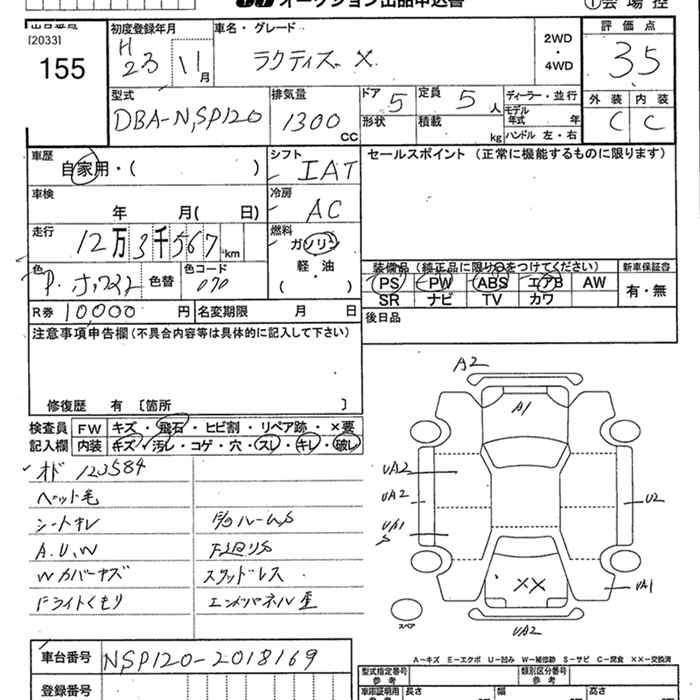 オークション出品申込書
[2033]
155
初度登録年月
H
23 11月
車名・グレード
ラクティス X
2WD
・
4WD
評価点
3.5
外装 内装
C C
型式
DBA-NSP120
排気量
1300cc
ドア 5
定員 5人
形状
積載 kg
ディーラー・並行
モデル年式 年
ハンドル 左・右
車歴
自家用・( )
シフト
IAT
セールスポイント (正常に機能するものに限ります)
車検
年 月( 日)
冷房
AC
走行
12万3千567km
燃料
ガソリン
軽・油
( ・ )
色
P.ホワイト
色替
色コード
070
装備品 (純正品に限り○をつけてください)
新車保証書
PS PW ABS エアB AW
有・無
SR ナビ TV カワ
R券 10,000円
名変期限 月 日
後日品
注意事項申告欄 (不具合内容等は具体的に記入して下さい)
修復歴 有 〔箇所 〕
検査員
記入欄
FW キズ・飛石・ヒビ割・リペア跡・×要
内装 キズ・汚し・コゲ・穴・スレ・キレ・破レ
オド 123584
ペット毛
シートキレ
ルームS
A.U.W
Wカバーキズ
スタッドレス
Fライトくもり
エンドパネル歪
A2
A1
UA2
UA2
UA1
S
U2
XX
UA1
UA2
スペア
A-キズ E-エクボ U-凹み W-補修跡 S-サビ C-腐食 XX-交換済
車台番号
NSP120-2018169
登録番号
型式指定番号
参考
類別区分番号
参考
車庫証明用
長さ
幅
高さ